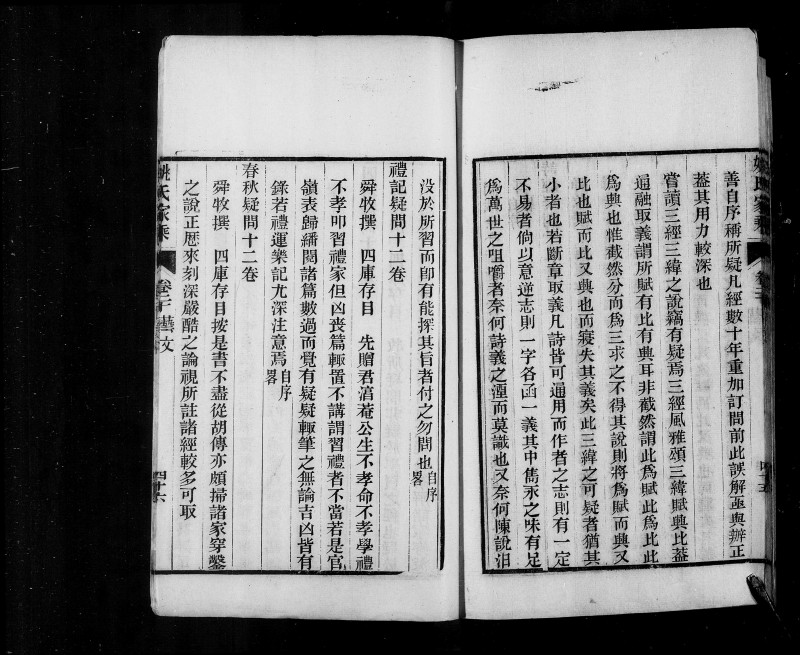 姚氏家乘
卷二十
善自序稱所疑凡經數十年重加訂問前此誤解亟與辦正
蓋其用力較深也
嘗讀三經三緯之說竊有疑焉三經風雅頌三緯賦興比蓋
通融取義謂所賦有比有興耳非截然謂此為賦此為比此
為興也惟截然分而為三求之不得其說則將為賦而興又
比也賦而比又興也而寢失其義矣此三緯之可疑者猶其
小者也若斷章取義凡詩皆可通用而作者之志則有一定
不易者倘以意逆志則一字各函一義其中雋永之味有足
為萬世之咀嚼者奈何詩義之湮而莫識也又奈何陳說汨
沒於所習而卽有能探其旨者付之勿問也自序畧
禮記疑問十二卷
舜牧撰 四庫存目 先贈君㴠菴公生不孝命不孝學禮
不孝叩習禮家但凶喪篇輒置不講謂習禮者不當若是官
嶺表歸繙閱諸篇數過而覺有疑疑輒筆之無論吉凶皆有
錄若禮運樂記尤深注意焉自序畧
春秋疑問十二卷
舜牧撰 四庫存目按是書不盡從胡傳亦頗掃諸家穿鑿
之說正歷來刻深嚴酷之論視所註諸經較多可取
姚氏家乘
卷二十 藝文
四十六